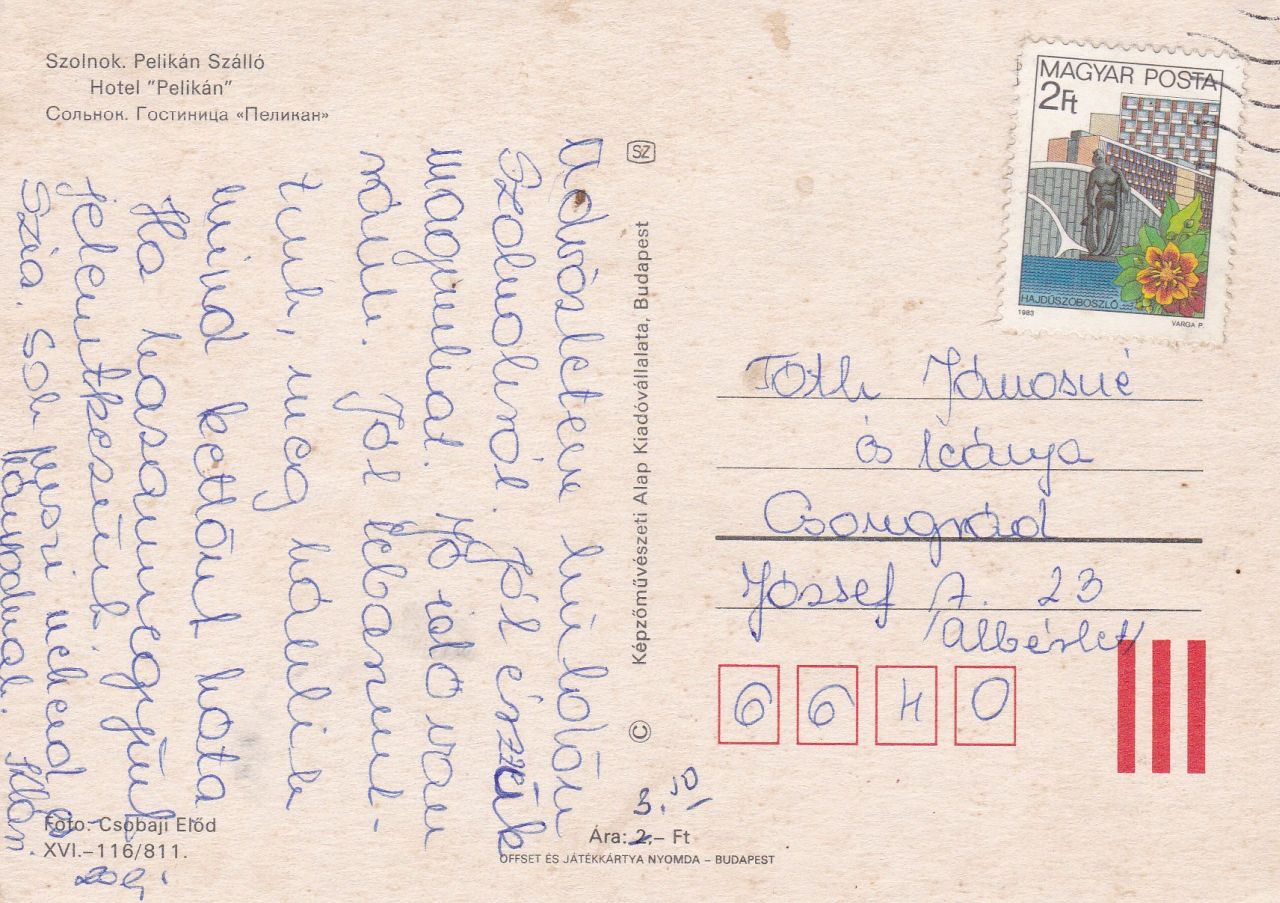 Szolnok. Pelikán Szálló
Hotel "Pelikán"
Сольнок. Гостиница «Пеликан»
MAGYAR POSTA
2Ft
HAJDÚSZOBOSZLÓ
1983
VARGA P.
Üdvözletem küldöm
Szolnokról. Jól érezzük
magunkat. Jó idő van
nálunk. Jól lebarnul-
tunk, meg hámlik
mind kettőnk háta
Ha hazamegyünk
jelentkezünk
Szia. Sok puszi neked és
Zoli
SZ
Képzőművészeti Alap Kiadóvállalata, Budapest
©
Tóth Jánosné
és leánya
Csongrád
József A. 23
/Albérlet/
6640
Fotó: Csobaji Előd
XVI.–116/811.
3.50
Ára: 2,– Ft
OFFSET ÉS JÁTÉKKÁRTYA NYOMDA – BUDAPEST